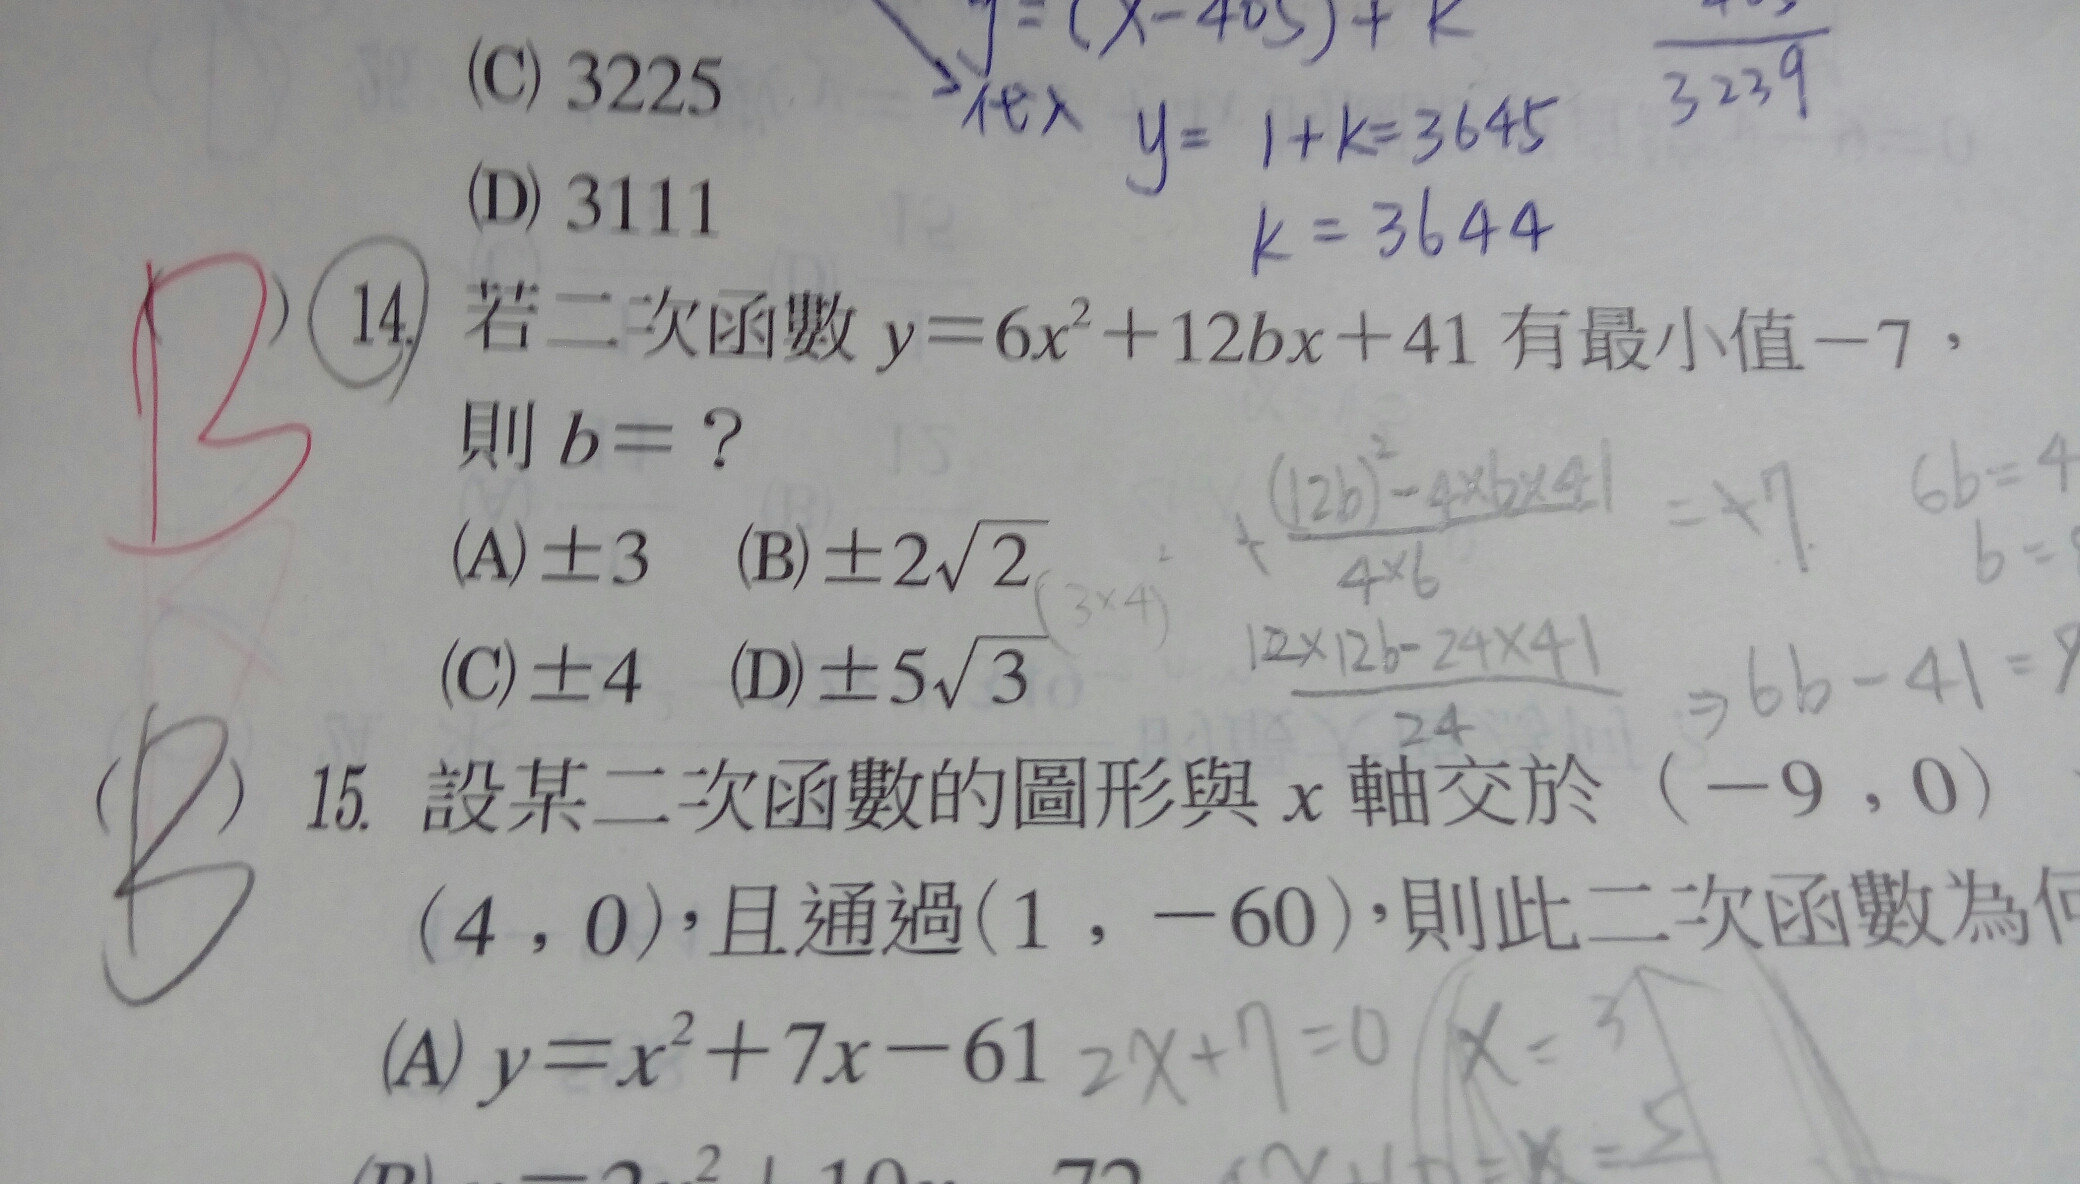 y=(x-405)+k
(C) 3225
3239
代入 y= 1+k=3645
(D) 3111
k=3644
B ) 14. 若二次函數 y=6x²+12bx+41 有最小值-7，
則 b=？
+ (12b)²-4×6×41 / 4×6 = +7
6b=4
b=
(A) ±3 (B) ±2√2
(3×4)²
(C) ±4 (D) ±5√3
12×12b-24×41 / 24 ⇒ 6b-41=
(B) 15. 設某二次函數的圖形與 x 軸交於（-9，0）
（4，0），且通過（1，-60），則此二次函數為何
(A) y=x²+7x-61 2x+7=0 x=3